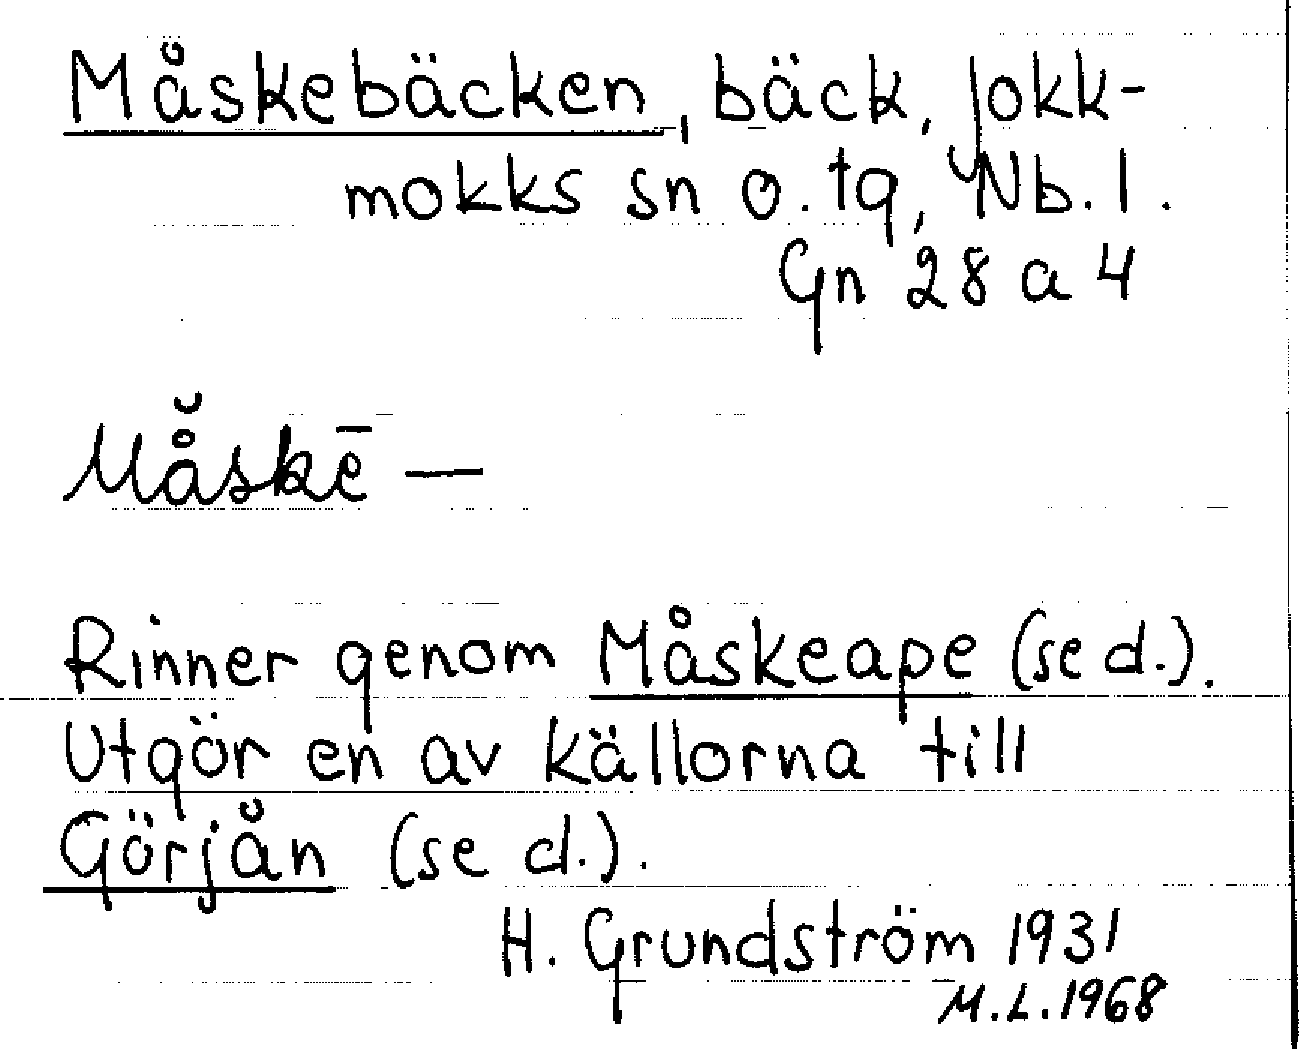 Måskebäcken, bäck, Jokk-
mokks sn o. tg, Nb. l.
Gn 28 a 4
Må̆skē —
Rinner genom Måskeape (se d.).
Utgör en av källorna till
Görjån (se d.).
H. Grundström 1931
M.L. 1968